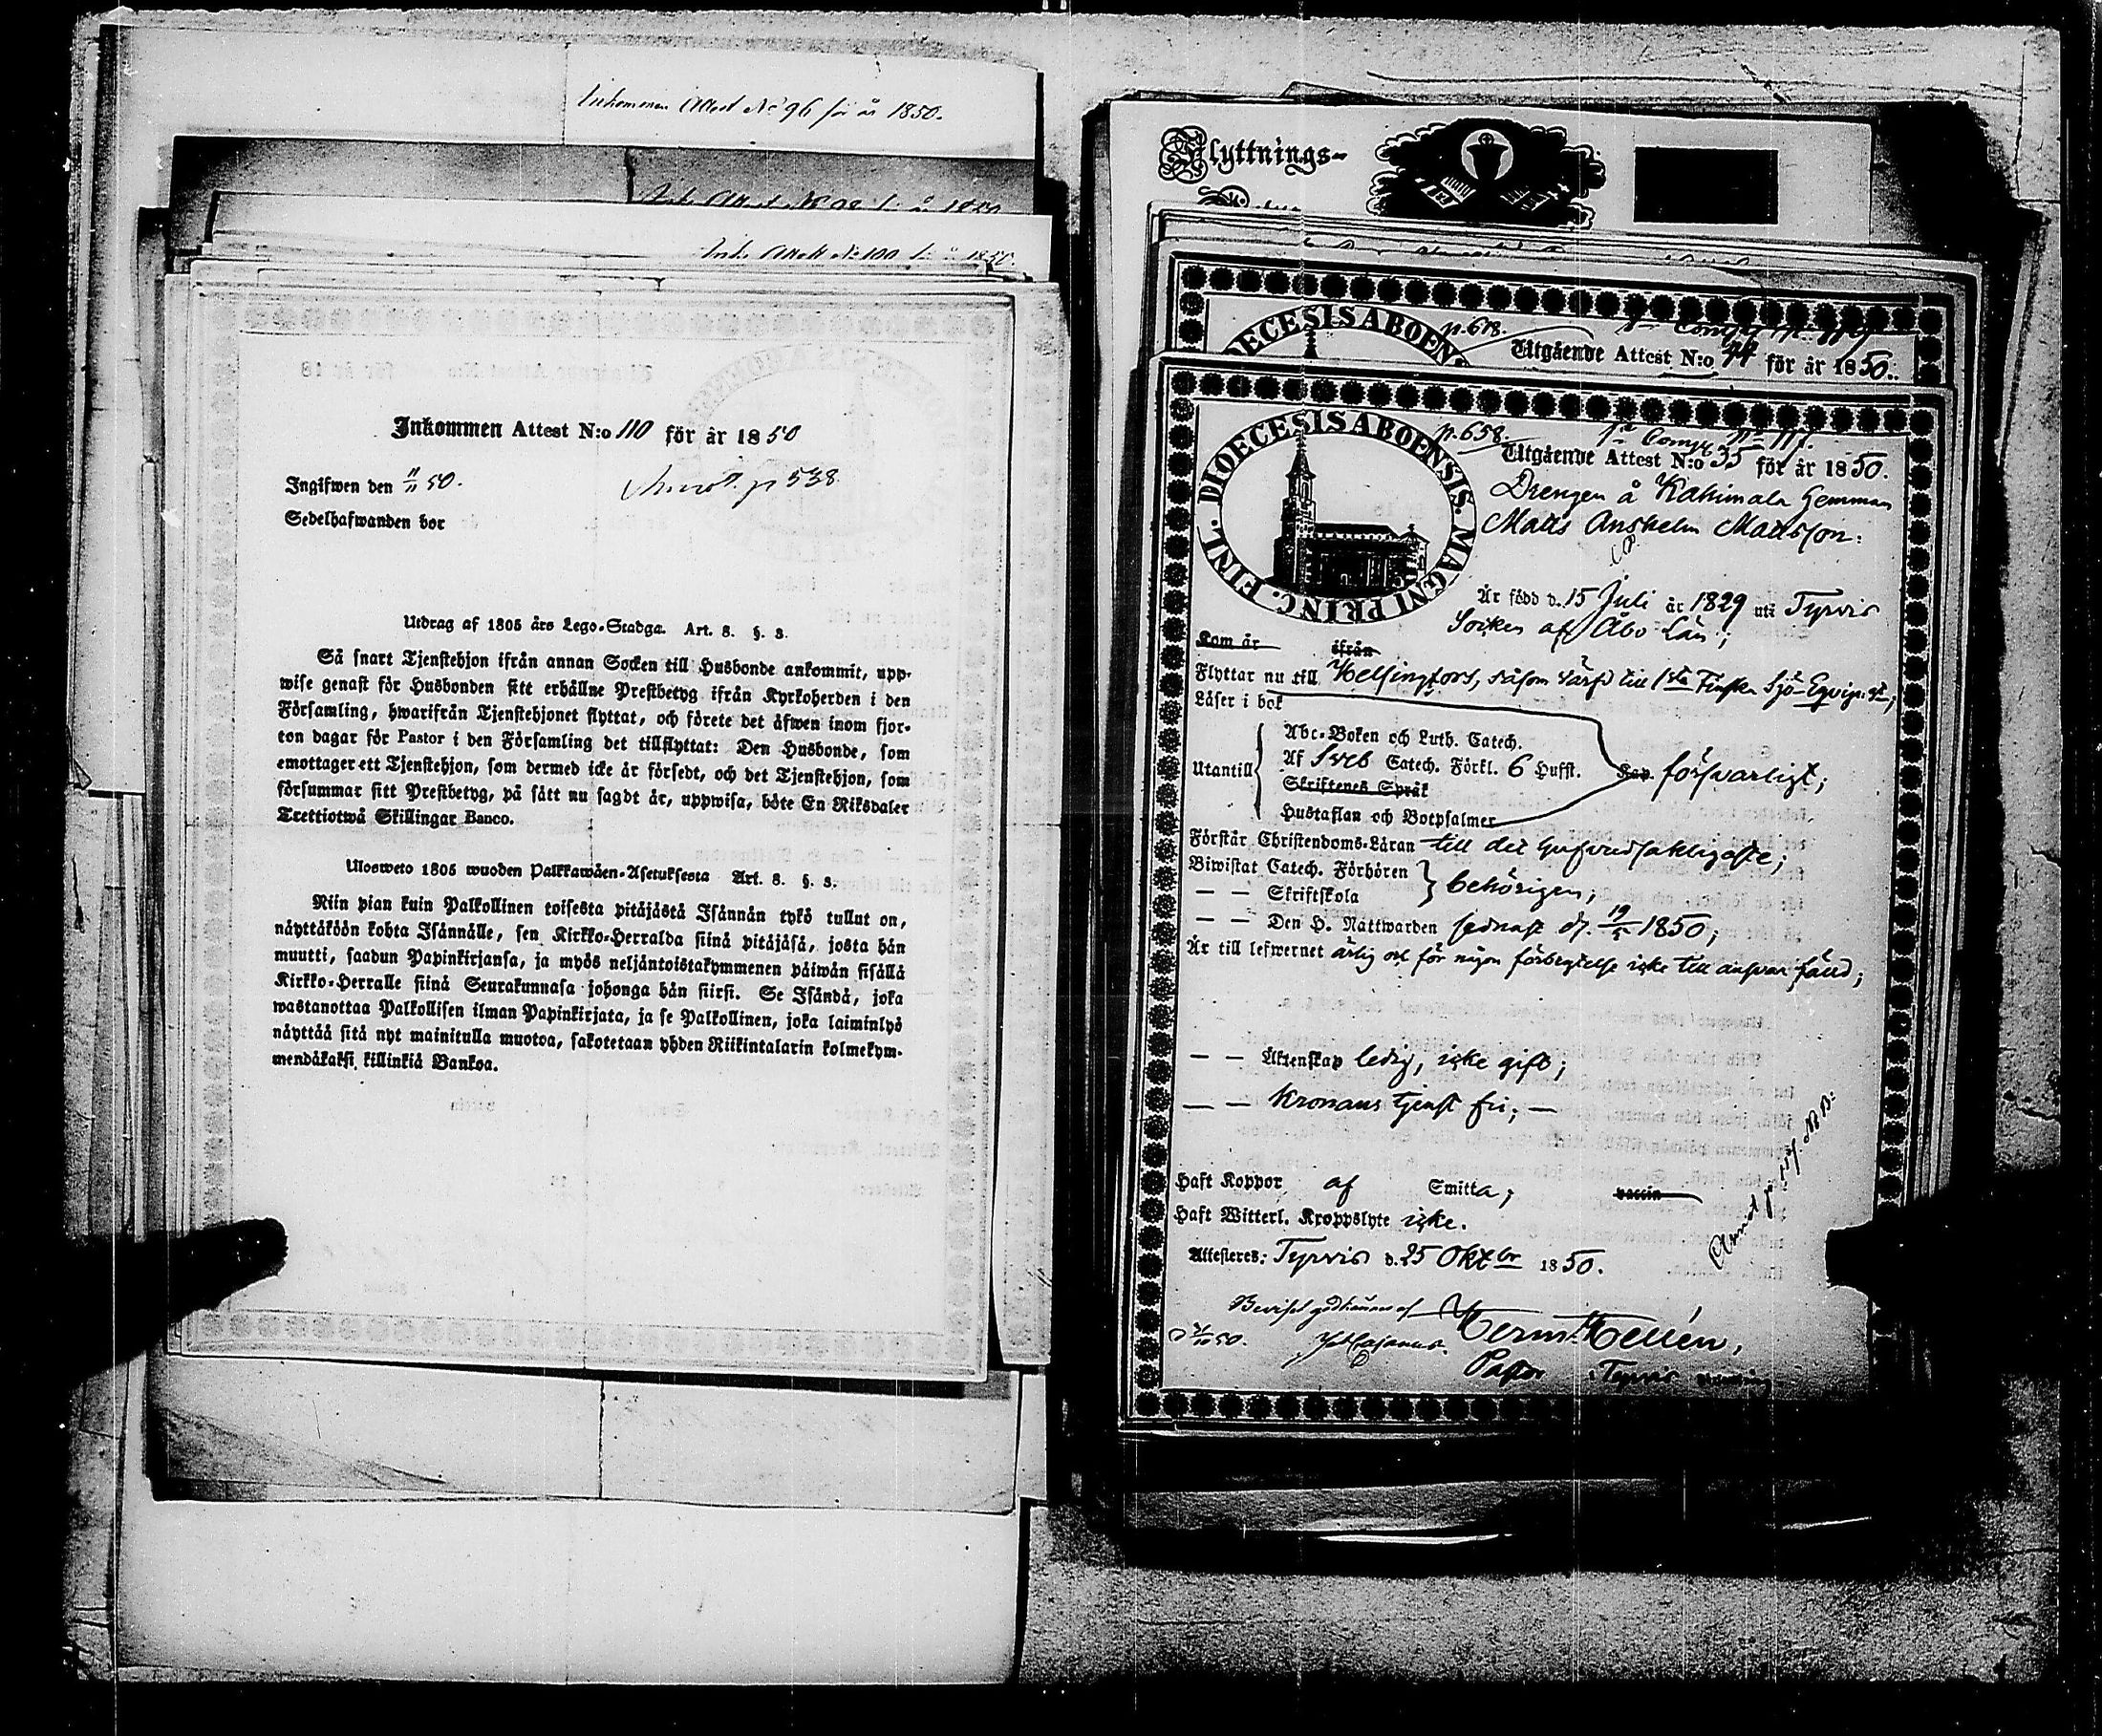 Inkommen Attest No 96 för år 1850.
Ink. Attest No 98 för år 1850
Ink. Attest No 100 för år 1850.
Inkommen Attest N:o 110 för år 1850
Ingifwen den 11/11 50.
p 538
Sedelhafwanden bor
Utdrag af 1805 års Lego-Stadga. Art. 8. §. 3.
Så snart Tjenstehjon ifrån annan Socken till Husbonde ankommit, upp-
wise genast för Husbonden sitt erhållne Prestbetyg ifrån Kyrkoherden i den
Församling, hwarifrån Tjenstehjonet flyttat, och förete det äfwen inom fjor-
ton dagar för Pastor i den Församling det tillflyttat: Den Husbonde, som
emottager ett Tjenstehjon, som dermed icke är försedt, och det Tjenstehjon, som
försummar sitt Prestbetyg, på sätt nu sagdt är, uppwisa, böte En Riksdaler
Trettiotwå Skillingar Banco.
Ulosweto 1805 wuoden Palkkawäen-Asetuksesta Art. 8. §. 3.
Niin pian kuin Palkollinen toisesta pitäjästä Isännän tykö tullut on,
näyttäköön kohta Isännälle, sen Kirkko-Herralda siinä pitäjäsä, josta hän
muutti, saadun Papinkirjansa, ja myös neljäntoistakymmenen päiwän sisällä
Kirkko-Herralle siinä Seurakunnasa johonga hän siirsi. Se Isändä, joka
wastanottaa Palkollisen ilman Papinkirjata, ja se Palkollinen, joka laiminlyö
näyttää sitä nyt mainitulla muotoa, sakotetaan yhden Riikintalarin kolmekym-
mendäkaksi killinkiä Bankoa.
Flyttnings-
DIOECESIS ABOENSIS
p. 678.
Utgående Attest N:o 44 för år 1850.
DIOECESIS ABOENSIS. MAGNI PRINC. FINL.
p. 658.
1a Comp. No 117.
Utgående Attest N:o 35 för år 1850.
Drengen å Kahimala hemman
Matts Anshelm Mattsson:
Är född d. 15 Juli år 1829 uti Tyrvis
Socken af Åbo Län;
Kom år ifrån
Flyttar nu till Helsingfors, såsom värfd till 1sta Finska Sjö-Eqvip.
Läser i bok
Utantill
Abc-Boken och Luth. Catech.
Af Sveb Catech. Förkl. 6 Hufst. Kap. försvarligt;
Skriftenes Språk
Hustaflan och Botpsalmer
Förstår Christendoms-Läran till det hufvudsakligaste;
Biwistat Catech. Förhören
behörigen;
— — Skriftskola
— — Den H. Nattwarden sednast d. 19/5 1850;
Är till lefwernet ärlig och för någon förbrytelse icke till ansvar fälld;
— — Äktenskap ledig, icke gift;
— — Kronans tjenst fri; —
Haft Koppor af Smitta; vaccin
Haft Witterl. Kroppslyte icke.
Attesteras: Tyrvis d. 25 Oktbr 1850.
Beviset godkännes af
Herm. Hellén,
Pastor i Tyrvis